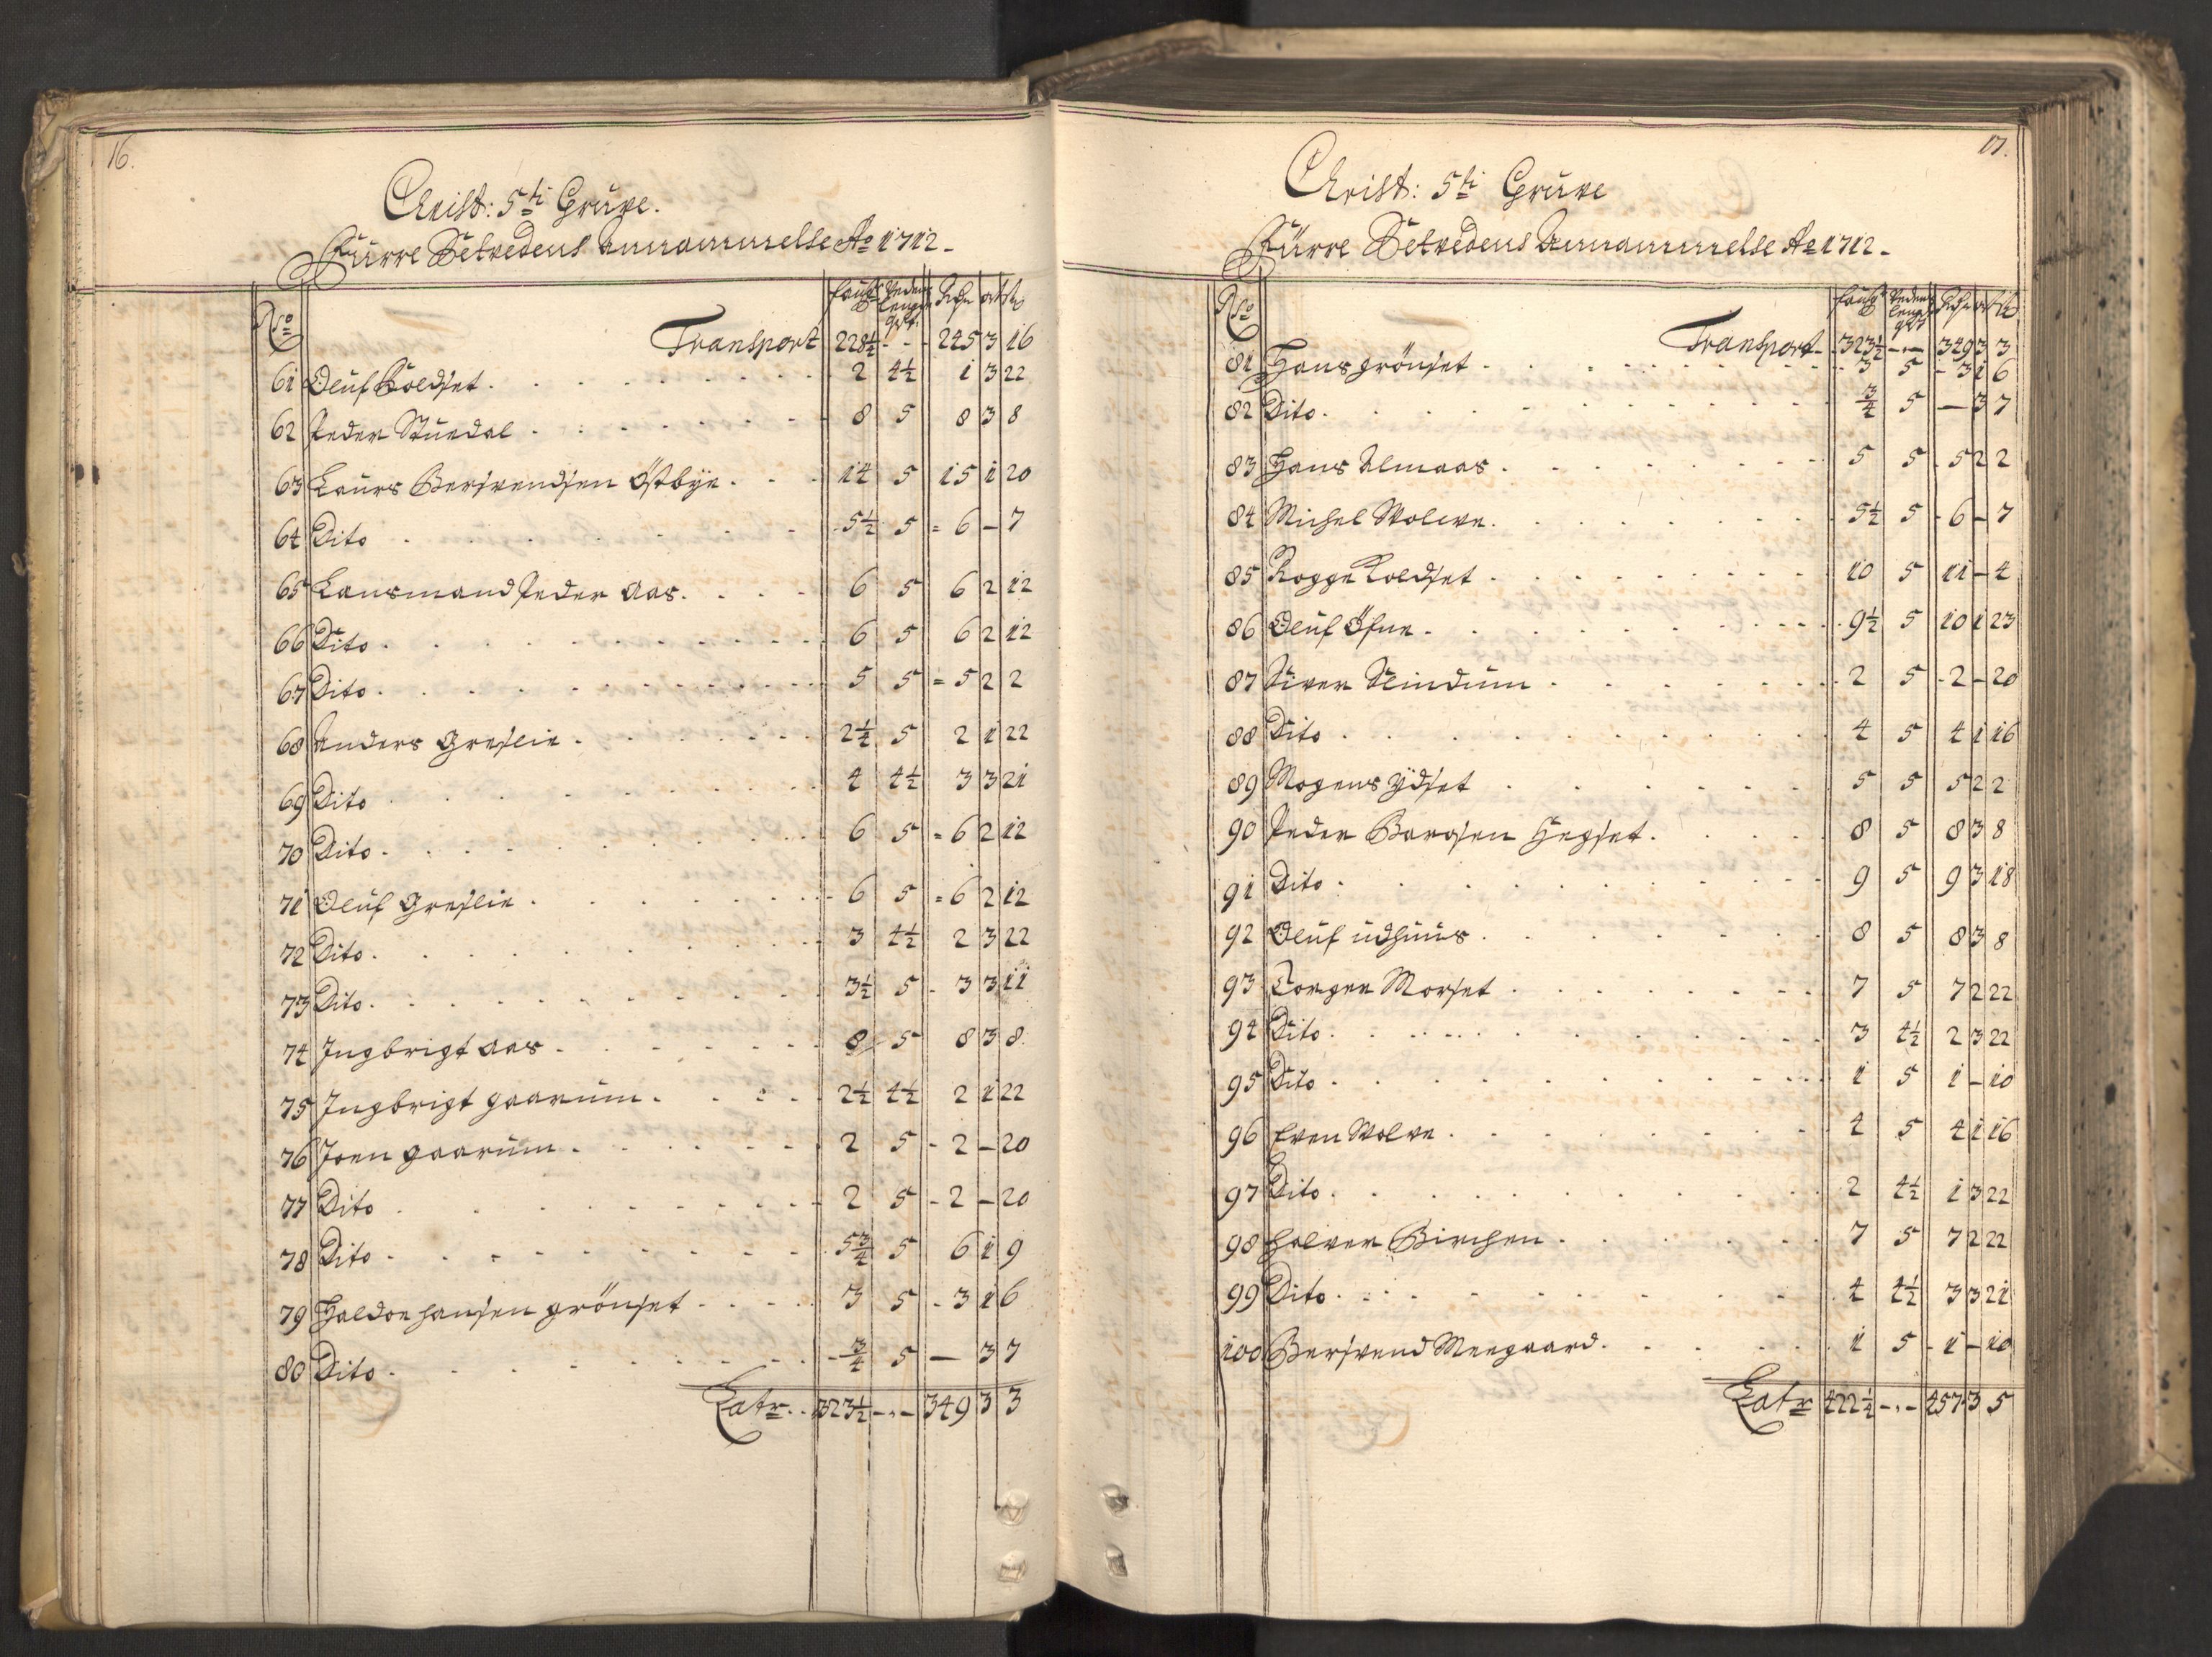 16.
Christ: 5ti Grüve.
Fürre Setvedens Annammelse Ao 1712.
No
Transport 228½ - - 245 3 16
61 Oluf Koldset . . . 2 4½ 1 3 22
62 Peder Stuedal . . . 8 5 8 3 8
63 Laurs Bersvendsen Östbÿe . . . 14 5 15 1 20
64 Dito . . . 5½ 5 = 6 - 7
65 Lansmand Peder Aas . . . 6 5 6 2 12
66 Dito . . . 6 5 6 2 12
67 Dito . . . 5 5 = 5 2 2
68 Anders Greslie . . . 2¼ 5 2 1 22
69 Dito . . . 4 4½ 3 3 21
70 Dito . . . 6 5 = 6 2 12
71 Oluf Greslie . . . 6 5 = 6 2 12
72 Dito . . . 3 4½ 2 3 22
73 Dito . . . 3½ 5 - 3 3 11
74 Ingbrigt Aas . . . 8 5 8 3 8
75 Ingbrigt gaarüm . . . 2½ 4½ 2 1 22
76 Joen gaarüm . . . 2 5 - 2 - 20
77 Dito . . . 2 5 - 2 - 20
78 Dito . . . 5¾ 5 6 1 9
79 Haldoe hansen grönset . . . 3 5 - 3 1 6
80 Dito . . . ¾ 5 — 3 7
Latr . . 323½ - . - 349 3 3
17.
Christ: 5ti Grüve
Fürre Setvedens Annammelse Ao 1712.
No
Transport 323½ - . - 349 3 3
81 Hans grönset . . . 3 5 - 3 1 6
82 Dito . . . ¾ 5 — 3 7
83 Hans Almaas . . . 5 5 - 5 2 2
84 Michel Wolwe . . . 5½ 5 - 6 - 7
85 Rogge Koldset . . . 10 5 11 - 4
86 Oluf Öfne . . . 9½ 5 10 1 23
87 Siver Flindüm . . . 2 5 - 2 - 20
88 Dito . . . 4 5 4 1 16
89 Mogens Ÿdset . . . 5 5 5 2 2
90 Peder Barosen Hegset . . . 8 5 8 3 8
91 Dito . . . 9 5 9 3 18
92 Oluf üdhuus . . . 8 5 8 3 8
93 Torger Morset . . . 7 5 7 2 22
94 Dito . . . 3 4½ 2 3 22
95 Dito . . . 1 5 1 - 10
96 Even Wolve . . . 4 5 4 1 16
97 Dito . . . 2 4½ 1 3 22
98 Halver Birchen . . . 7 5 7 2 22
99 Dito . . . 4 4½ 3 3 21
100 Bersvend Meegaard . . . 1 5 - 1 - 10
Latr 422½ - . - 457 3 5